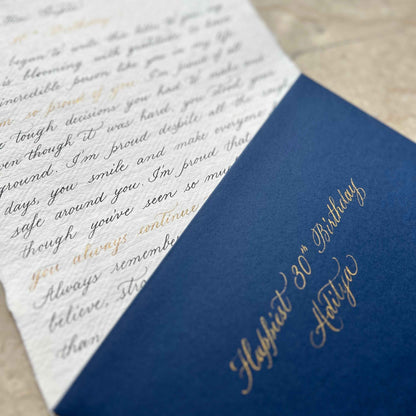 30th Birthday
began to write this letter to you, my
is blooming with gratitude to have
incredible person like you in my life.
so proud of you. I'm proud of all
tough decisions you had to make and
even though it was hard, you stood your
ground. I'm proud despite all the
days, you smile and make everyone
safe around you. I'm proud that
though you've seen so mu
you always continue
Always remember
believe, stro
than
Happiest 30th Birthday
Aditya